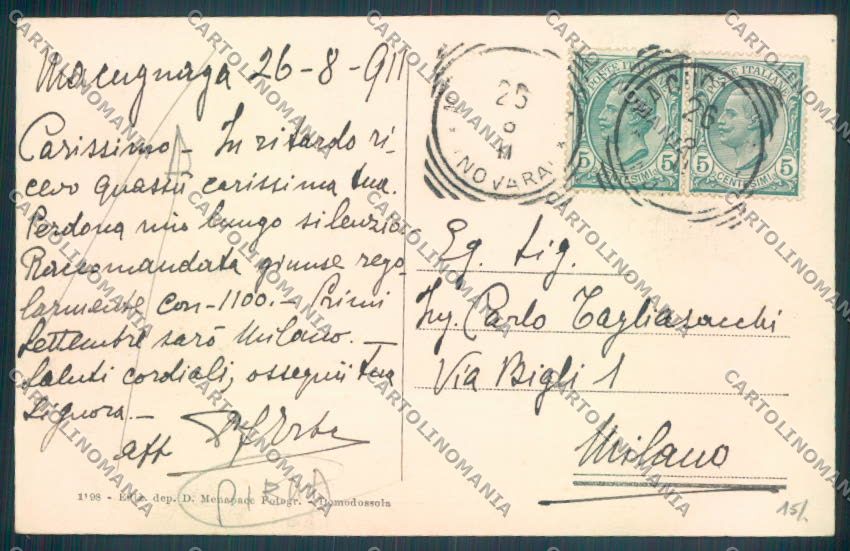 Macugnaga 26-8-911
Carissimo - In ritardo ri-
cevo quassù carissima tua.
Perdona mio lungo silenzio.
Raccomandata giunse rego-
larmente con -1100.- Primi
Settembre sarò Milano. -
Saluti cordiali, ossequi tua
Signora. -
aff
Eg. Sig.
Ing. Carlo Tagliasacchi
Via Bigli 1
Milano
POSTE ITALIANE
5 CENTESIMI 5
POSTE ITALIANE
5 CENTESIMI 5
25
8
11
NOVARA
26
1198 - Ediz. dep. D. Menapace Fotogr. - Domodossola
15/-
CARTOLINOMANIA